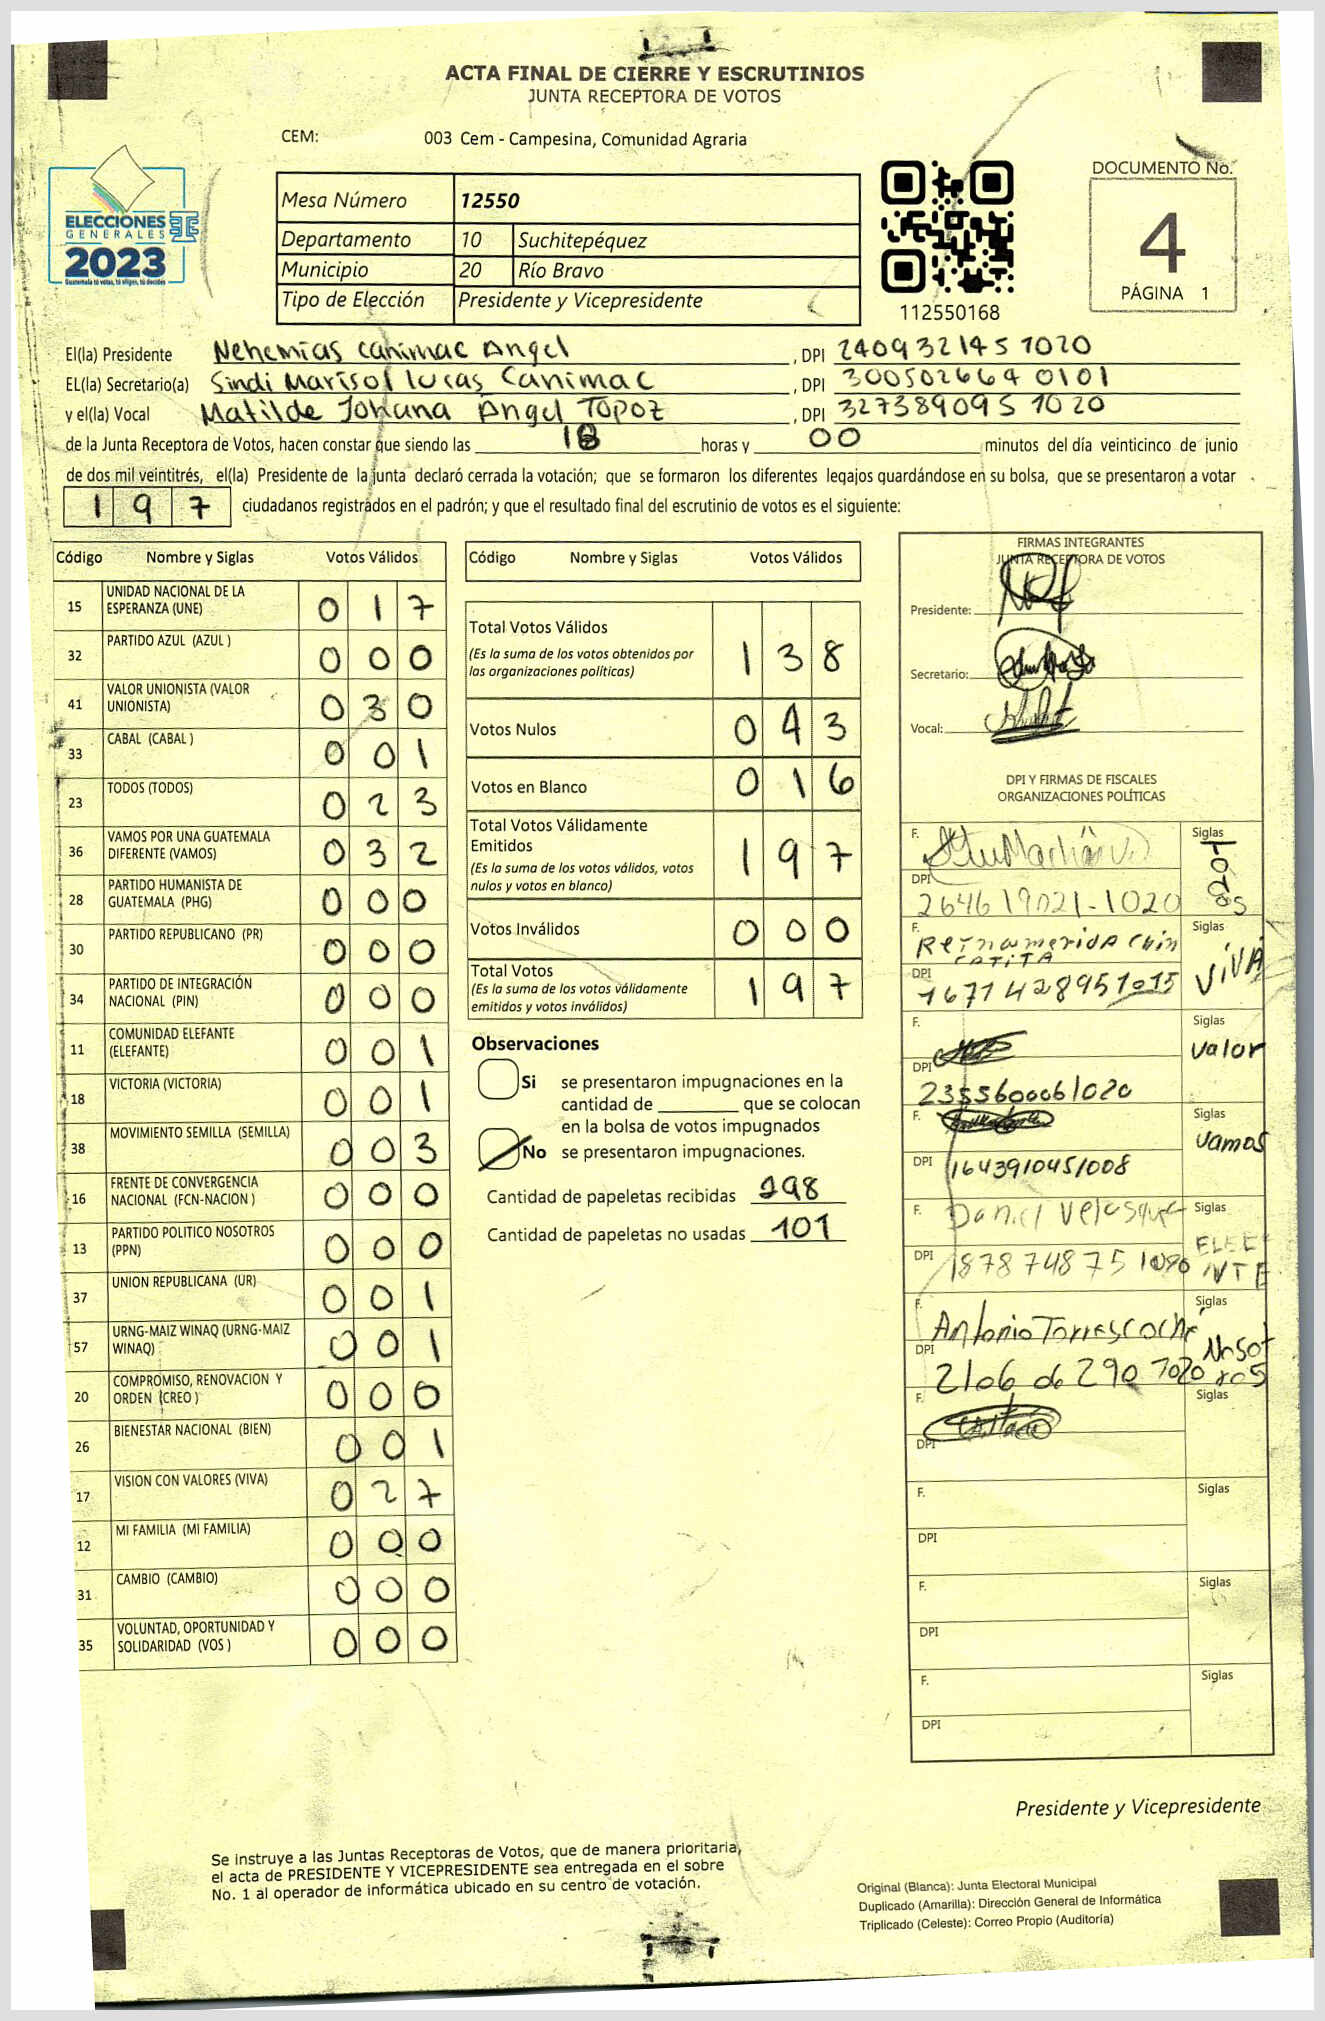 ACTA FINAL DE CIERRE Y ESCRUTINIOS
JUNTA RECEPTORA DE VOTOS
CEM: 003 Cem - Campesina, Comunidad Agraria
ELECCIONES
GENERALES
2023
Guatemala tú votas, tú eliges, tú decides
Mesa Número 12550
Departamento 10 Suchitepéquez
Municipio 20 Río Bravo
Tipo de Elección Presidente y Vicepresidente
112550168
DOCUMENTO No.
4
PÁGINA 1
El(la) Presidente Nehemías Canimac Angel , DPI 2409321451020
EL(la) Secretario(a) Sindi Marisol Lucas Canimac , DPI 3005026640101
y el(la) Vocal Matilde Johana Angel Topoz , DPI 3273890951020
de la Junta Receptora de Votos, hacen constar que siendo las 18 horas y 00 minutos del día veinticinco de junio
de dos mil veintitrés, el(la) Presidente de la junta declaró cerrada la votación; que se formaron los diferentes legajos guardándose en su bolsa, que se presentaron a votar
197 ciudadanos registrados en el padrón; y que el resultado final del escrutinio de votos es el siguiente:
Código Nombre y Siglas Votos Válidos
15 UNIDAD NACIONAL DE LA ESPERANZA (UNE) 017
32 PARTIDO AZUL (AZUL ) 000
41 VALOR UNIONISTA (VALOR UNIONISTA) 030
33 CABAL (CABAL ) 001
23 TODOS (TODOS) 023
36 VAMOS POR UNA GUATEMALA DIFERENTE (VAMOS) 032
28 PARTIDO HUMANISTA DE GUATEMALA (PHG) 000
30 PARTIDO REPUBLICANO (PR) 000
34 PARTIDO DE INTEGRACIÓN NACIONAL (PIN) 000
11 COMUNIDAD ELEFANTE (ELEFANTE) 001
18 VICTORIA (VICTORIA) 001
38 MOVIMIENTO SEMILLA (SEMILLA) 003
16 FRENTE DE CONVERGENCIA NACIONAL (FCN-NACION ) 000
13 PARTIDO POLITICO NOSOTROS (PPN) 000
37 UNION REPUBLICANA (UR) 001
57 URNG-MAIZ WINAQ (URNG-MAIZ WINAQ) 001
20 COMPROMISO, RENOVACION Y ORDEN (CREO ) 000
26 BIENESTAR NACIONAL (BIEN) 001
17 VISION CON VALORES (VIVA) 027
12 MI FAMILIA (MI FAMILIA) 000
31 CAMBIO (CAMBIO) 000
35 VOLUNTAD, OPORTUNIDAD Y SOLIDARIDAD (VOS ) 000
Código Nombre y Siglas Votos Válidos
Total Votos Válidos 138
(Es la suma de los votos obtenidos por
las organizaciones políticas)
Votos Nulos 043
Votos en Blanco 016
Total Votos Válidamente
Emitidos 197
(Es la suma de los votos válidos, votos
nulos y votos en blanco)
Votos Inválidos 000
Total Votos 197
(Es la suma de los votos válidamente
emitidos y votos inválidos)
Observaciones
Si se presentaron impugnaciones en la
cantidad de ________ que se colocan
en la bolsa de votos impugnados
No se presentaron impugnaciones.
Cantidad de papeletas recibidas 298
Cantidad de papeletas no usadas 101
FIRMAS INTEGRANTES
JUNTA RECEPTORA DE VOTOS
Presidente:
Secretario:
Vocal:
DPI Y FIRMAS DE FISCALES
ORGANIZACIONES POLÍTICAS
F. Siglas TODOS
DPI 264619021-1020
F. Reina merida Siglas VIVA
DPI 1671428951015
F. Siglas Valor
DPI 2355600061020
F. Siglas Vamos
DPI 1643910451008
F. Daniel Velasquez Siglas ELEFANTE
DPI 1878748751020
F. Antonio Torres Coché Siglas Nosotros
DPI 2106 06290 1020
F. Siglas
DPI
F. Siglas
DPI
F. Siglas
DPI
F. Siglas
DPI
Presidente y Vicepresidente
Se instruye a las Juntas Receptoras de Votos, que de manera prioritaria,
el acta de PRESIDENTE Y VICEPRESIDENTE sea entregada en el sobre
No. 1 al operador de informática ubicado en su centro de votación.
Original (Blanca): Junta Electoral Municipal
Duplicado (Amarilla): Dirección General de Informática
Triplicado (Celeste): Correo Propio (Auditoría)